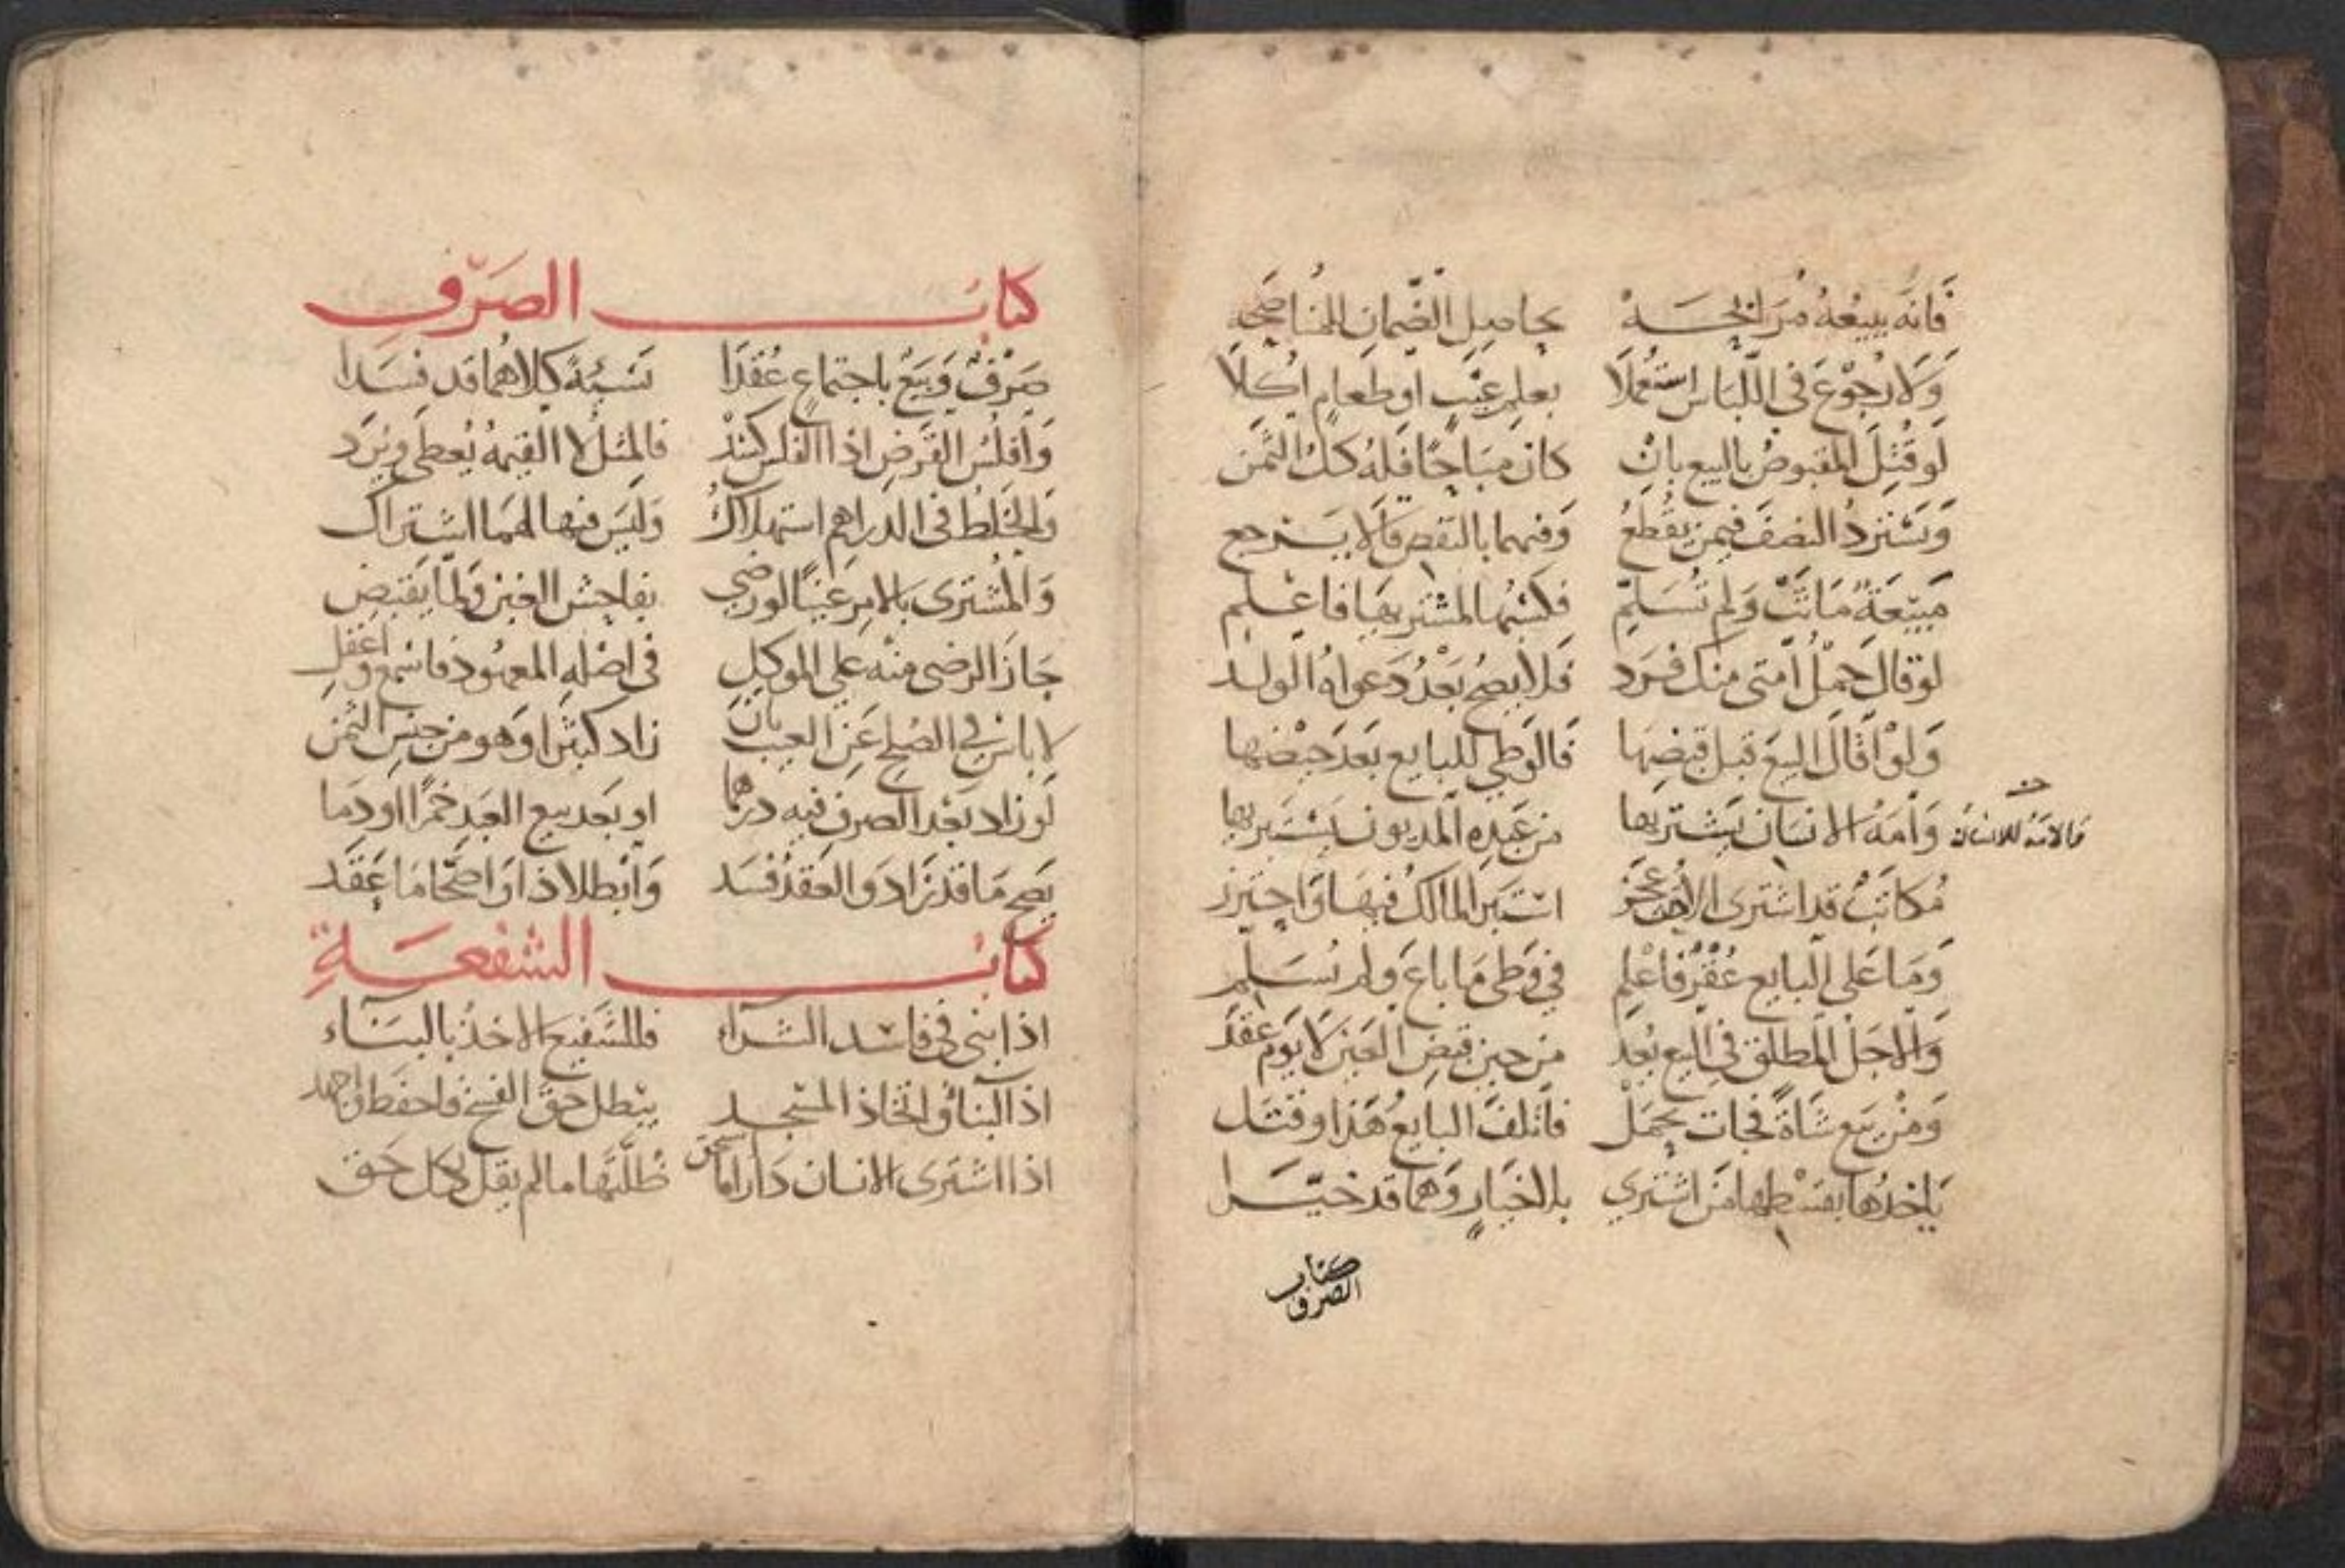 فَانَّه يبيعُهُ مُرَابَحَهْ بحاصِل الضَّمانِ
وَلَا رُجُوْعَ فى اللّبَاس استُعمِلَا بعلم عَيْبٍ او طعامٍ اُكلَا
لَو قُتِلَ المقبوضُ بالبيع بانْ كان مبَاحًا فلهُ كلُّ الثَّمن
وَيَسْتَردُّ النصفَ فيمن يُقْطَعُ وفيهما بالنقص مَا لا يَسترجع
مَبيْعَةٌ مَاتَتْ وَلم تُسَلَّمِ فكَسْبُها لمشتريها فاعْلم
لو قال حَمْلُ اَمَتى منك فرَد فَلا يصحُّ بَعْدُ دَعواهُ الولد
وَلوْ اَقَالَ البيعَ قبل قبضِهَا فَالوَطى للبايع بَعدَ حيْضها
وَاَمَةُ الانسَان يَشْتريها من عَبْدِه المديون يَسْتَبريها
فالامَة للانسان
مُكاتَبٌ قد اشترى الاُخت عجَز اسْتَبرا المالكُ فيهَا وَاحترز
وَمَا عَلى البايع عُقْرٌ فَاعْلم فى وَطى مَا باعَ وَلم يُسَلّم
وَالاجَل المطلق فى البيع يُعَد من حين قبض العَين لا يَوْم عقَد
وَمَنْ يَبع شَاةً فجات بحَمَلْ فاَتلفَ البايعُ هَذا او قتَل
يَاخذُها بقسْطِها مَن اشترى بلا خيَارٍ وَهما قد خيّرا
كتاب
الصرف
كتابُ الصَرْفِ
صَرْفٌ وَبَيعٌ باجتماعٍ عُقدَا نَسيْئةً كِلاهُما قد فسَدا
وَاَفلُسُ القَرضِ اذا الفلس كسَدْ فالمثلُ لا القيمةُ يُعطى ويُرَد
وَالخَلطُ فى الدراهم استهلاكُ وَليسَ فيها لهمَا اشتراك
وَالمُشترى بالامرِ عَيْنًا لو رضى بفاحِش الغبن وَلمَّا يَقبض
جَازَ الرضى منْه على الموكل فى اصْلهِ المعهُود فاسمع وَاعقل
لا باس فى الصُلح عَن العيب بانْ زاد كثيرًا وَهو من جنس الثمن
لَو زاد بَعْدَ الصرف فيه درهما او بَعد بيع العَبد خمرًا او دَما
يَصح مَا قد زَادَ والعَقدُ فسَد وَابْطلا ذا اَو اصَحَّا مَا عَقَد
كتابُ الشفعَةِ
اذا بنى فى فاسد الشرآء فللشَفيع الاخذُ بالبنَاء
اذ البنا وَاتخاذ المسْجد يبْطل حَقَّ الفسخ فاحفظ وَاجهد
اذا اشترَى الانسان دَارًا مَا سَحَق طَلَبَها ما لم يقل بكل حَق